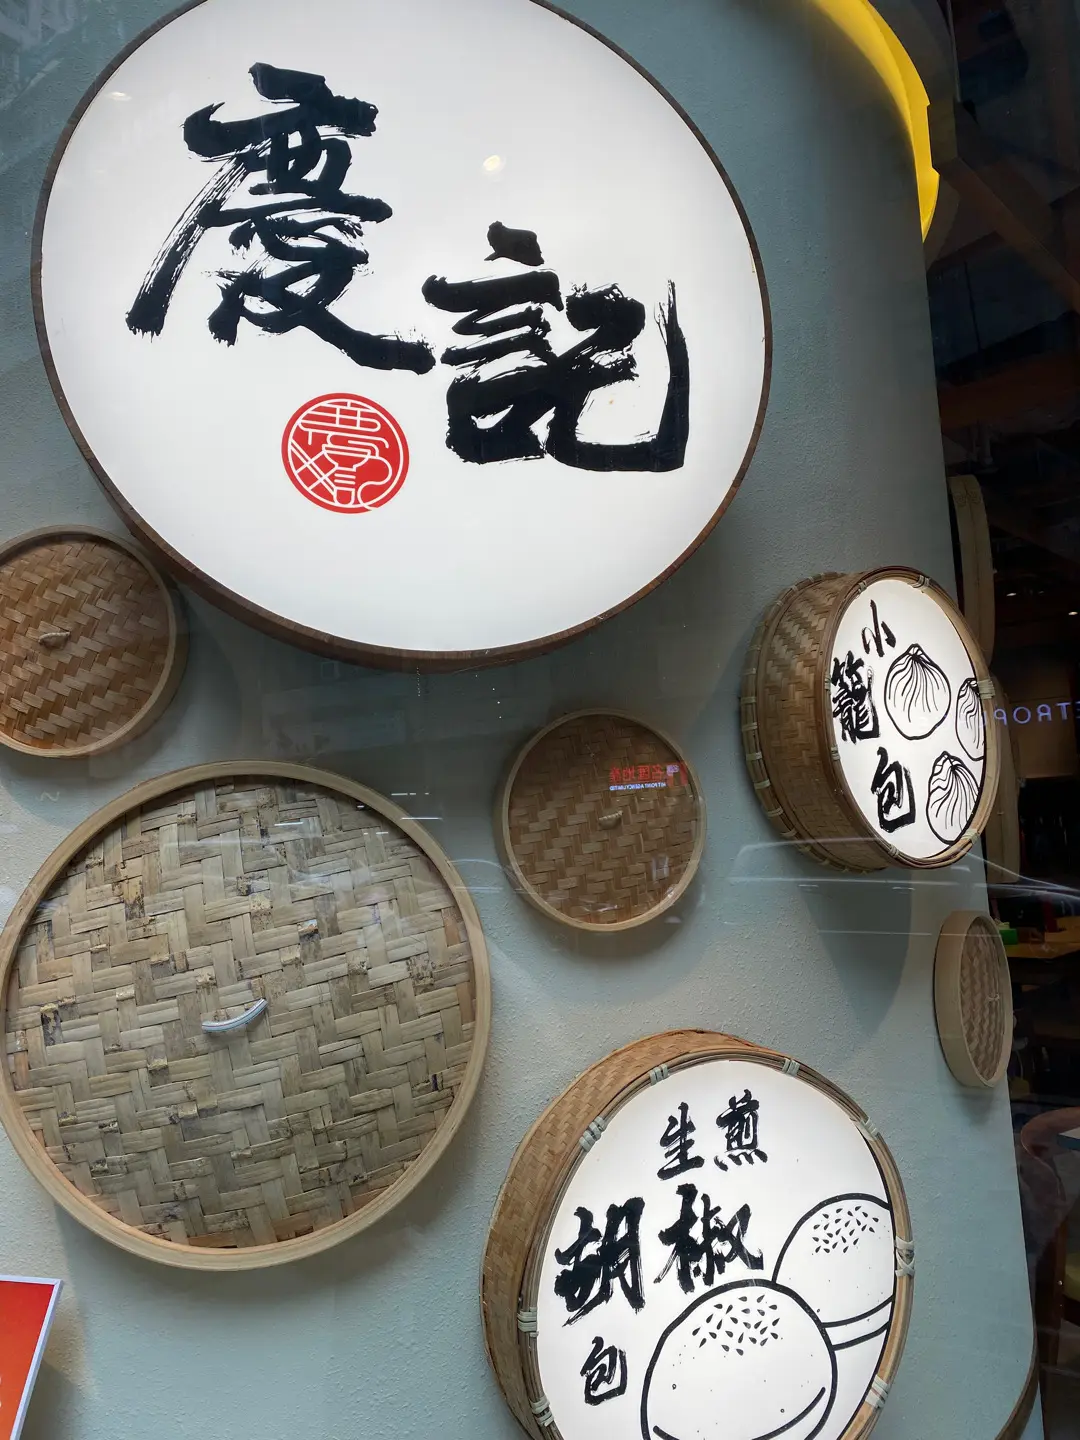 慶記
小籠包
生煎
胡椒
包